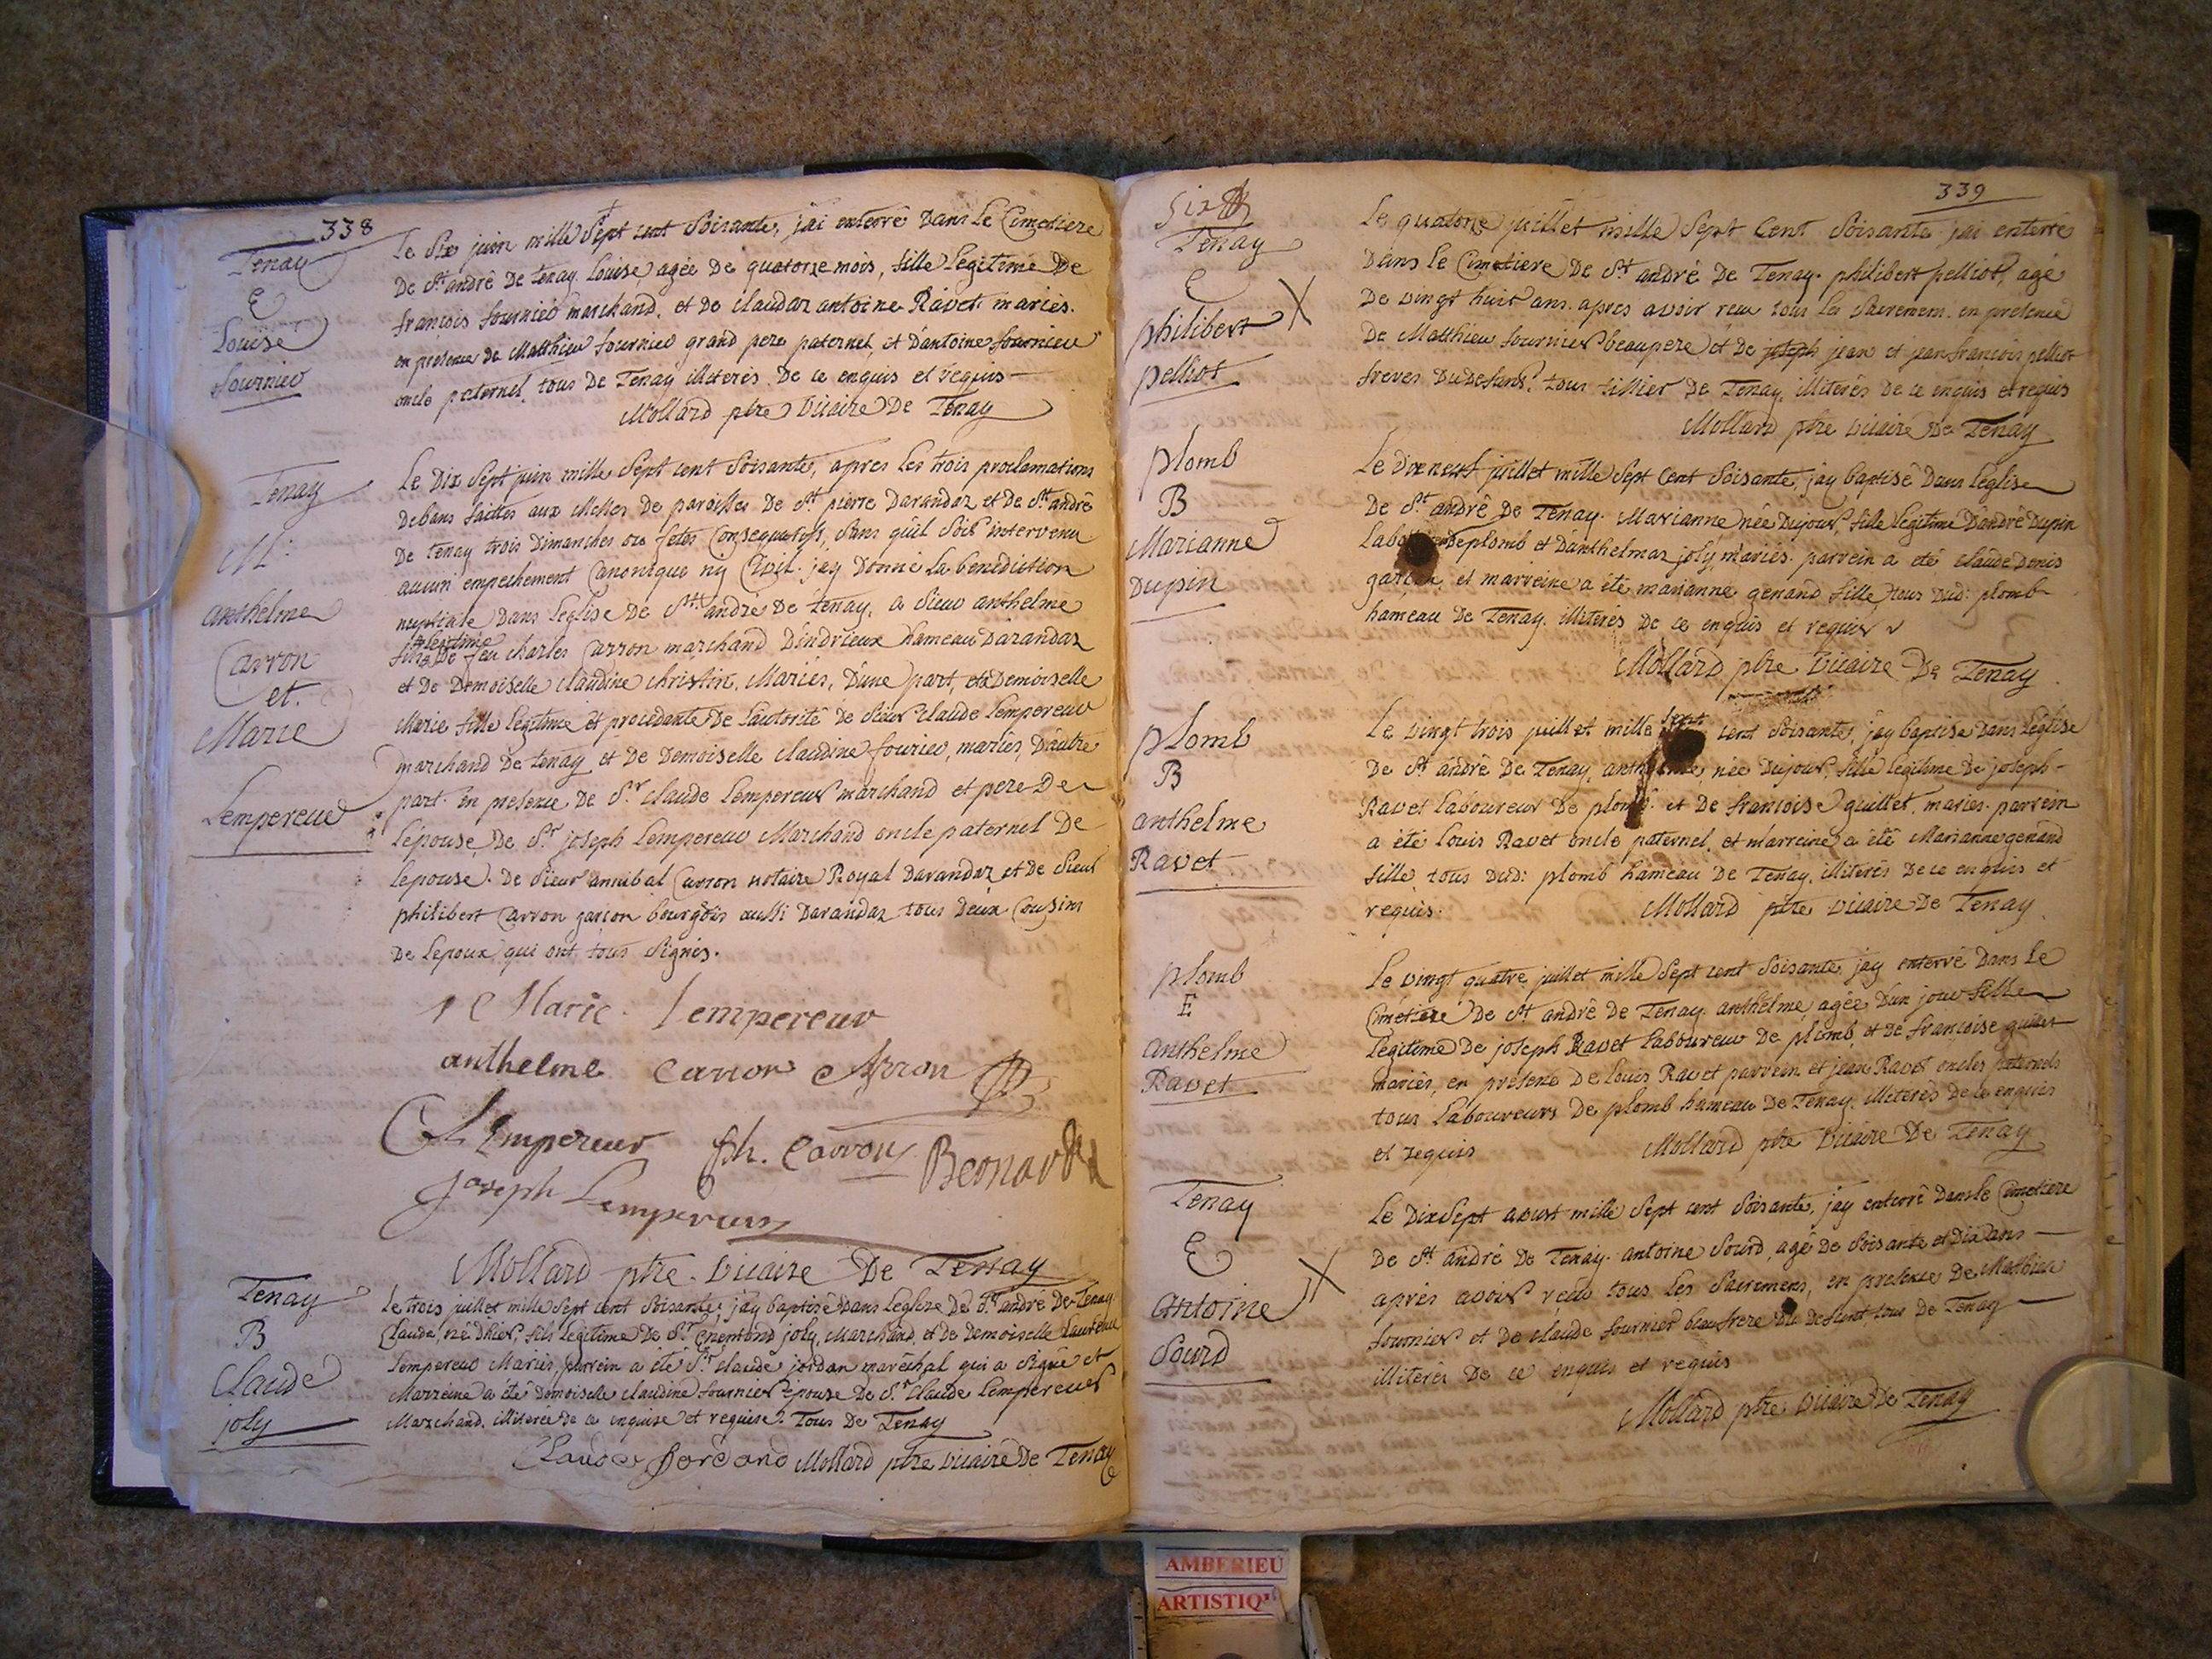 338
Tenay
E
Louise
fournier
Le Six juin mille Sept cent Soisante, j'ai enterré Dans Le Cimetiere
De St andré de tenay. Louise, agée De quatorze mois, fille Legitime De
françois fournier marchand, et de claudaz antoine Ravet mariés.
en presence de Matthieu fournier grand pere paternel, et d'antoine fournier
oncle paternel. tous De Tenay illiterés De ce enquis et requis
Mollard ptre Vicaire De Tenay
Tenay
M.
anthelme
Carron
et.
Marie
Lempereur
Le Dix Sept juin mille Sept cent Soisante, apres Les trois proclamations
De bans faittes aux Messes De paroisses De St pierre Darandaz et De St andré
De tenay trois Dimanches ou fetes Consequutifs, Sans qu'il Soit intervenu
aucun empechement Canonique ny Civil. jay Donné La benediction
nuptiale Dans L'eglise De St andré De tenay, a Sieur anthelme
fils legitime De feu charles Carron marchand D'indrieux hameau Darandaz
et De Demoiselle claudine christin, Mariés, D'une part, et Demoiselle
Marie fille Legitime et procedante De L'autorité de Sieur claude Lempereur
marchand De tenay et De Demoiselle claudine fournier, mariés, D'autre
part. en presence de Sr claude Lempereur marchand et pere De
L'épouse, De Sr joseph Lempereur Marchand oncle paternel De
L'epouse. De Sieur annibal Carron notaire Royal Darandaz et de Sieur
philibert Carron garçon bourgois aussi Darandaz tous Deux Cousins
De Lepoux qui ont tous Signés.
Marie Lempereur
anthelme Carron Carron
C L'Empereur ph. Carron Bernard
Joseph Lempereur
Mollard ptre. Vicaire De Tenay
Tenay
B
Claude
joly
Le trois juillet mille Sept cent Soisante, j'ay baptisé Dans Leglise De St andré De Tenay
Claude, né D'hier, fils Legitime De Sr Ennemond joly, Marchand, et De Demoiselle Laurence
Lempereur Mariés, parrein a été Sr claude jordan maréchal qui a Signé et
Marreine a été Demoiselle claudine fournier épouse De Sr claude Lempereur
Marchand. illiterée de ce enquise et requise. Tous De Tenay
Claude Jordand Mollard ptre Vicaire De Tenay
339
Six
Tenay
E
philibert
pelliot
Le quatorze juillet mille Sept Cent Soisante j'ai enterré
Dans Le Cimetiere De St andré De Tenay. philibert pelliot, agé
De vingt huit ans. apres avoir reçu tous les Sacremens. en presence
De Matthieu fournier beaupere et de joseph jean et jean françois pelliot
freres Du Defunt. tous tillier de Tenay. illiterés de ce enquis et requis
Mollard ptre Vicaire De Tenay
plomb
B
Marianne
Dupin
Le Dix neuf juillet mille Sept Cent Soisante, j'ay baptisé Dans L'église
De St andré De Tenay. Marianne, née Dujour, fille Legitime D'andré Dupin
De plomb et D'anthelmaz joly, mariés. parrein a eté claude Denis
garçon, et marreine a été marianne genand fille, tous Dud: plomb
hameau De Tenay. illiterés De ce enquis et requis
Mollard ptre Vicaire De Tenay
plomb
B
anthelme
Ravet
Le vingt trois juillet mille Sept cent Soisante, j'ay baptisé Dans L'église
De St andré De Tenay, anthelme née Dujour, fille Legitime De joseph
Ravet Laboureur De plomb. et De francoise guillet, mariés. parrein
a été Louis Ravet oncle paternel, et marreine a été Marianne genand
fille, tous Dud: plomb hameau De Tenay, illiterés De ce enquis et
requis. Mollard ptre Vicaire De Tenay
plomb
E
anthelme
Ravet
Le vingt quatre juillet mille Sept cent Soisante, jay enterré Dans Le
Cimetiere De St andré de Tenay. anthelme, agée D'un jour fille
Legitime De joseph Ravet Laboureur De plomb, et de francoise guillet
mariés, en presence De Louis Ravet parrein et jean Ravet oncles paternels
tous Laboureurs De plomb hameau De Tenay, illiterés De ce enquis
et requis Mollard ptre Vicaire De Tenay
Tenay
E
Antoine
Sourd
Le Dix Sept aoust mille Sept cent Soisante, j'ay enterré Dans le Cimetiere
De St andré De Tenay. antoine Sourd, agé De Soisante et Dix ans
après avoir reçu tous Les Sacremens, en presence De Mathieu
fournier et De claude fournier beaufrere Du Defunt tous De Tenay
illiterés De ce enquis et requis
Mollard ptre Vicaire De Tenay
AMBERIEU
ARTISTIQ